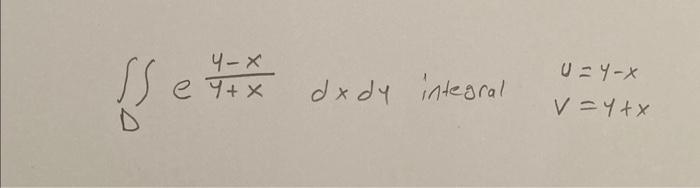 ∬_D e^{\frac{y-x}{y+x}} dxdy integral
u = y-x
v = y+x